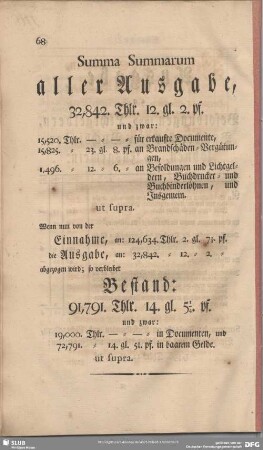 68.
Summa Summarum
aller Ausgabe,
32,842. Thlr. 12. gl. 2. pf.
und zwar:
15,520. Thlr. — " — " für erkaufte Documente,
15,825. " 23. gl. 8. pf. an Brandschäden-Vergütun-
gen,
1,496. " 12. " 6. " an Besoldungen und Lichtgel-
dern, Buchdrucker- und
Buchbinderlöhnen, und
Insgemein.
ut supra.
Wenn nun von der
Einnahme, an: 124,634. Thlr. 2. gl. 7½. pf.
die Ausgabe, an: 32,842. " 12. " 2. "
abgezogen wird; so verbleibet
Bestand:
91,791. Thlr. 14. gl. 5½. pf.
und zwar:
19,000. Thlr. — " — " in Documenten, und
72,791. " 14. gl. 5½. pf. in baarem Gelde.
ut supra.
SLUB